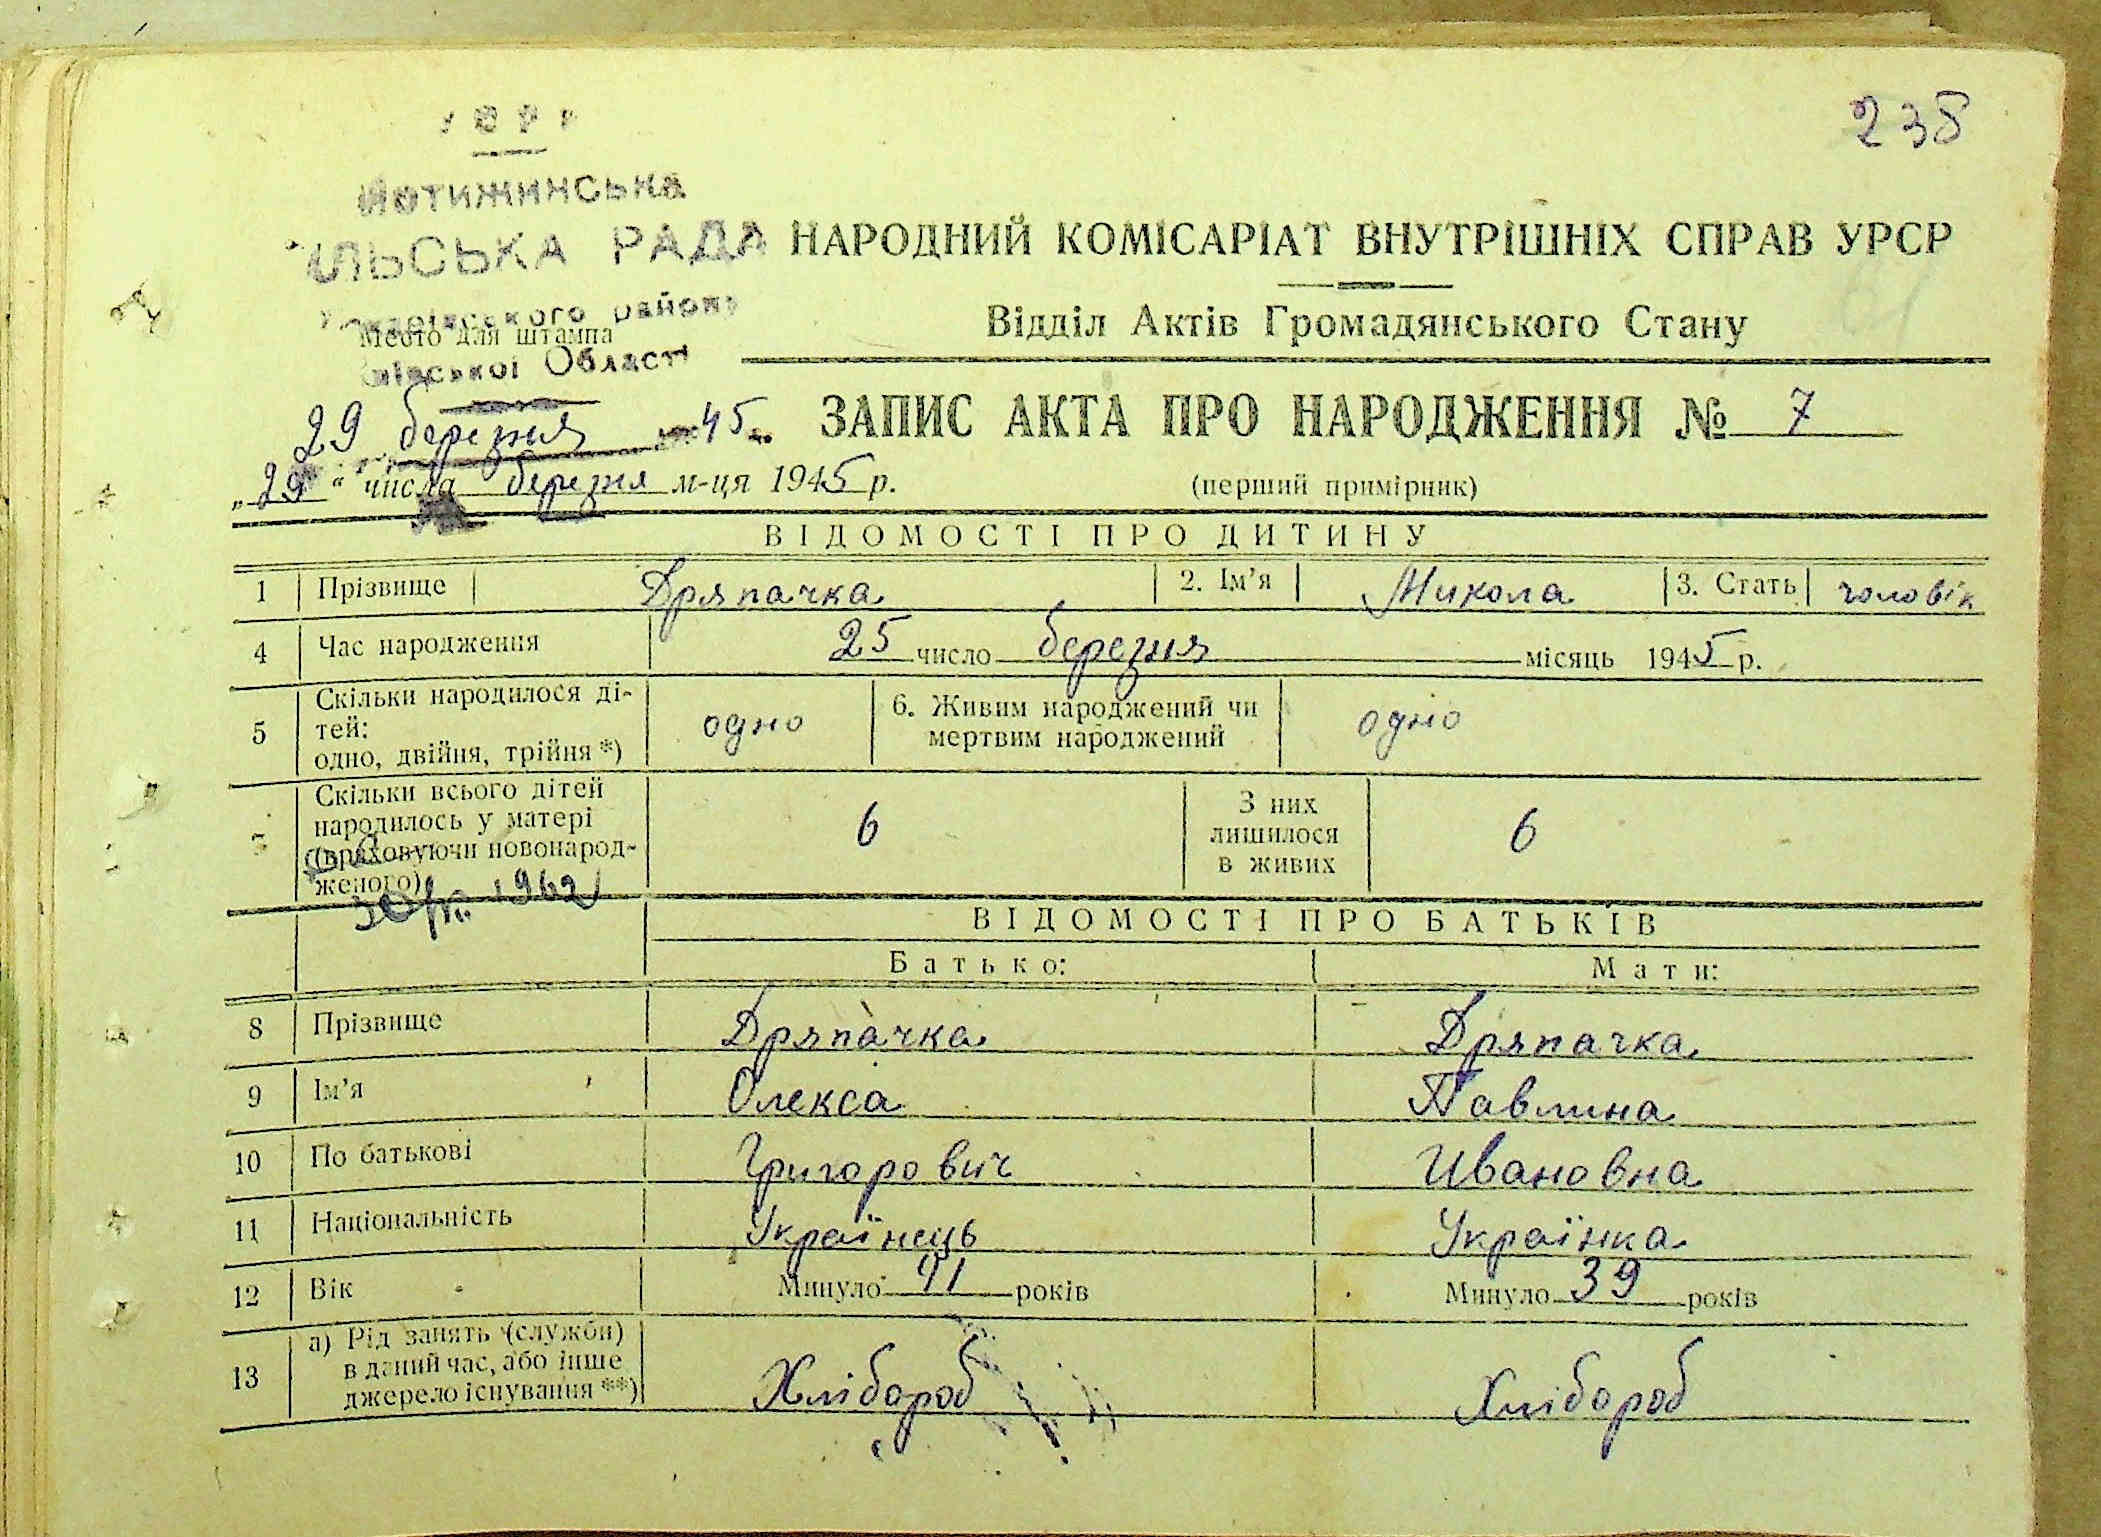 238
МОТИЖИНСЬКА
СІЛЬСЬКА РАДА
Макарівського району
Место для штампа
Київської Області
29 березня 45
НАРОДНИЙ КОМІСАРІАТ ВНУТРІШНІХ СПРАВ УРСР
Відділ Актів Громадянського Стану
ЗАПИС АКТА ПРО НАРОДЖЕННЯ № 7
„29“ числа березня м-ця 1945 р.
(перший примірник)
ВІДОМОСТІ ПРО ДИТИНУ
1 Прізвище Дряпачка 2. Ім’я Микола 3. Стать чоловік
4 Час народження 25 число березня місяць 1945 р.
5 Скільки народилося ді-
тей:
одно, двійня, трійня *) одно
6. Живим народжений чи
мертвим народжений одно
7 Скільки всього дітей
народилось у матері
(враховуючи новонарод-
женого) 6
З них
лишилося
в живих 6
1962
ВІДОМОСТІ ПРО БАТЬКІВ
Батько: Мати:
8 Прізвище Дряпачка Дряпачка
9 Ім’я Олекса Павлина
10 По батькові Григорович Ивановна
11 Національність Українець Українка
12 Вік Минуло 41 років Минуло 39 років
13 а) Рід занять (служби)
в даний час, або інше
джерело існування **) Хлібороб Хлібороб